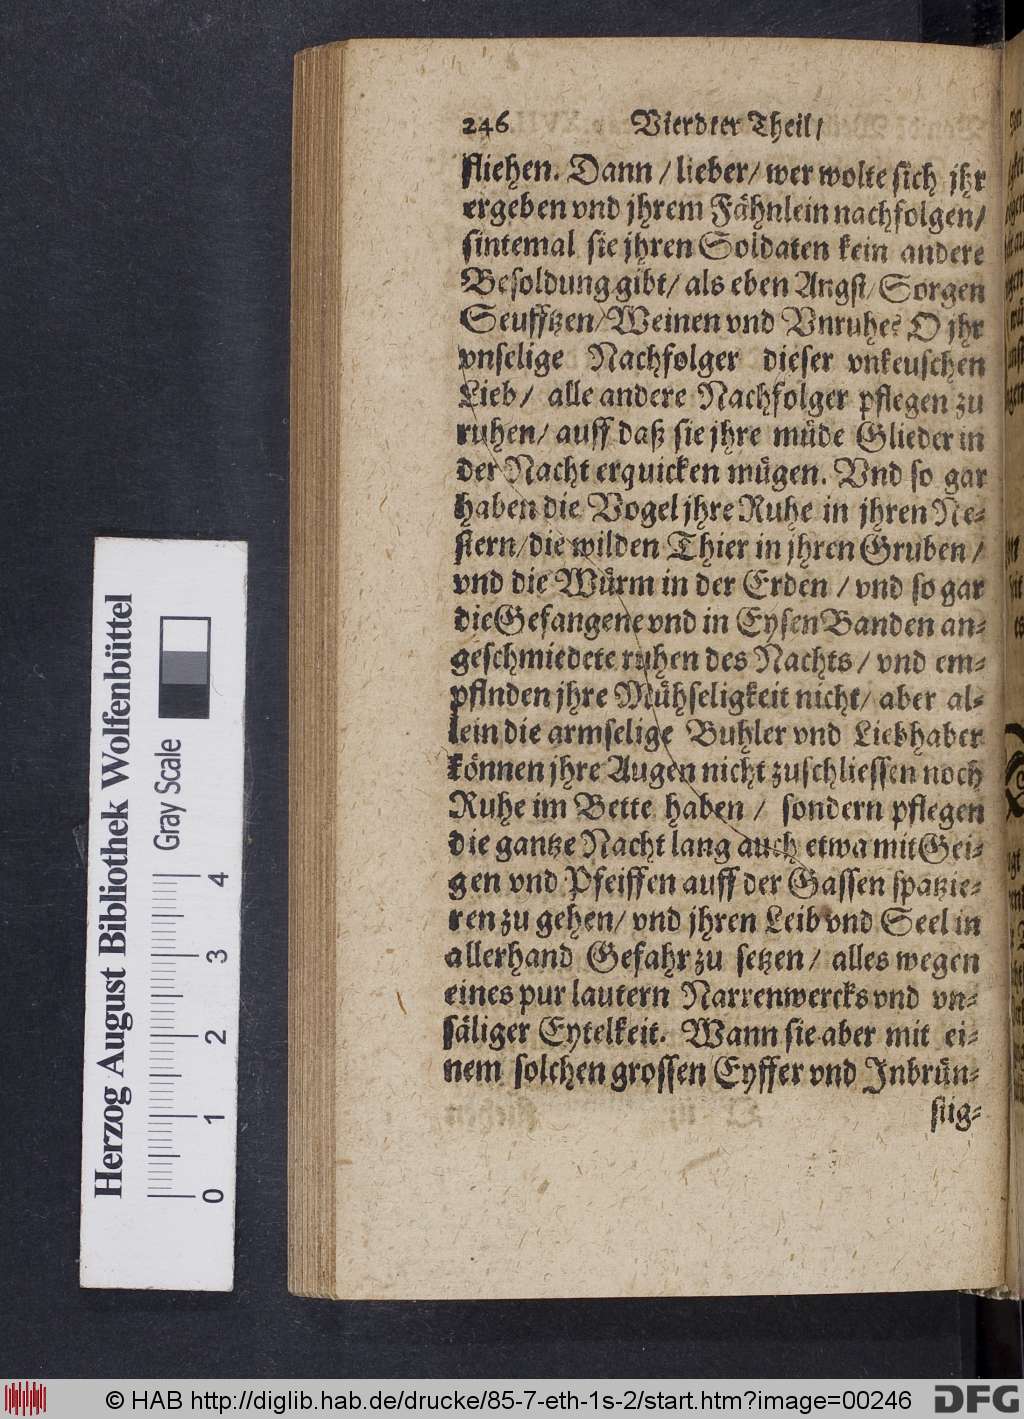 246 Vierdter Theil/
fliehen. Dann / lieber/ wer wolte sich jhr
ergeben vnd jhrem Fähnlein nachfolgen/
sintemal sie jhren Soldaten kein andere
Besoldung gibt/ als eben Angst/ Sorgen
Seufftzen/ Weinen vnd Vnruhe? O jhr
vnselige Nachfolger dieser vnkeuschen
Lieb/ alle andere Nachfolger pflegen zu
ruhen/ auff daß sie jhre müde Glieder in
der Nacht erquicken mügen. Vnd so gar
haben die Vogel jhre Ruhe in jhren Ne-
stern/ die wilden Thier in jhren Gruben /
vnd die Würm in der Erden / vnd so gar
die Gefangene vnd in Eysen Banden an-
geschmiedete ruhen des Nachts / vnd em-
pfinden jhre Mühseligkeit nicht/ aber al-
lein die armselige Buhler vnd Liebhaber
können jhre Augen nicht zuschliessen noch
Ruhe im Bette haben / sondern pflegen
die gantze Nacht lang auch etwa mit Gei-
gen vnd Pfeiffen auff der Gassen spatzie-
ren zu gehen/ vnd jhren Leib vnd Seel in
allerhand Gefahr zu setzen/ alles wegen
eines pur lautern Narrenwercks vnd vn-
säliger Eytelkeit. Wann sie aber mit ei-
nem solchen grossen Eyffer vnd Inbrün-
stig-
Herzog August Bibliothek Wolfenbüttel
Gray Scale
0 1 2 3 4
© HAB http://diglib.hab.de/drucke/85-7-eth-1s-2/start.htm?image=00246
DFG